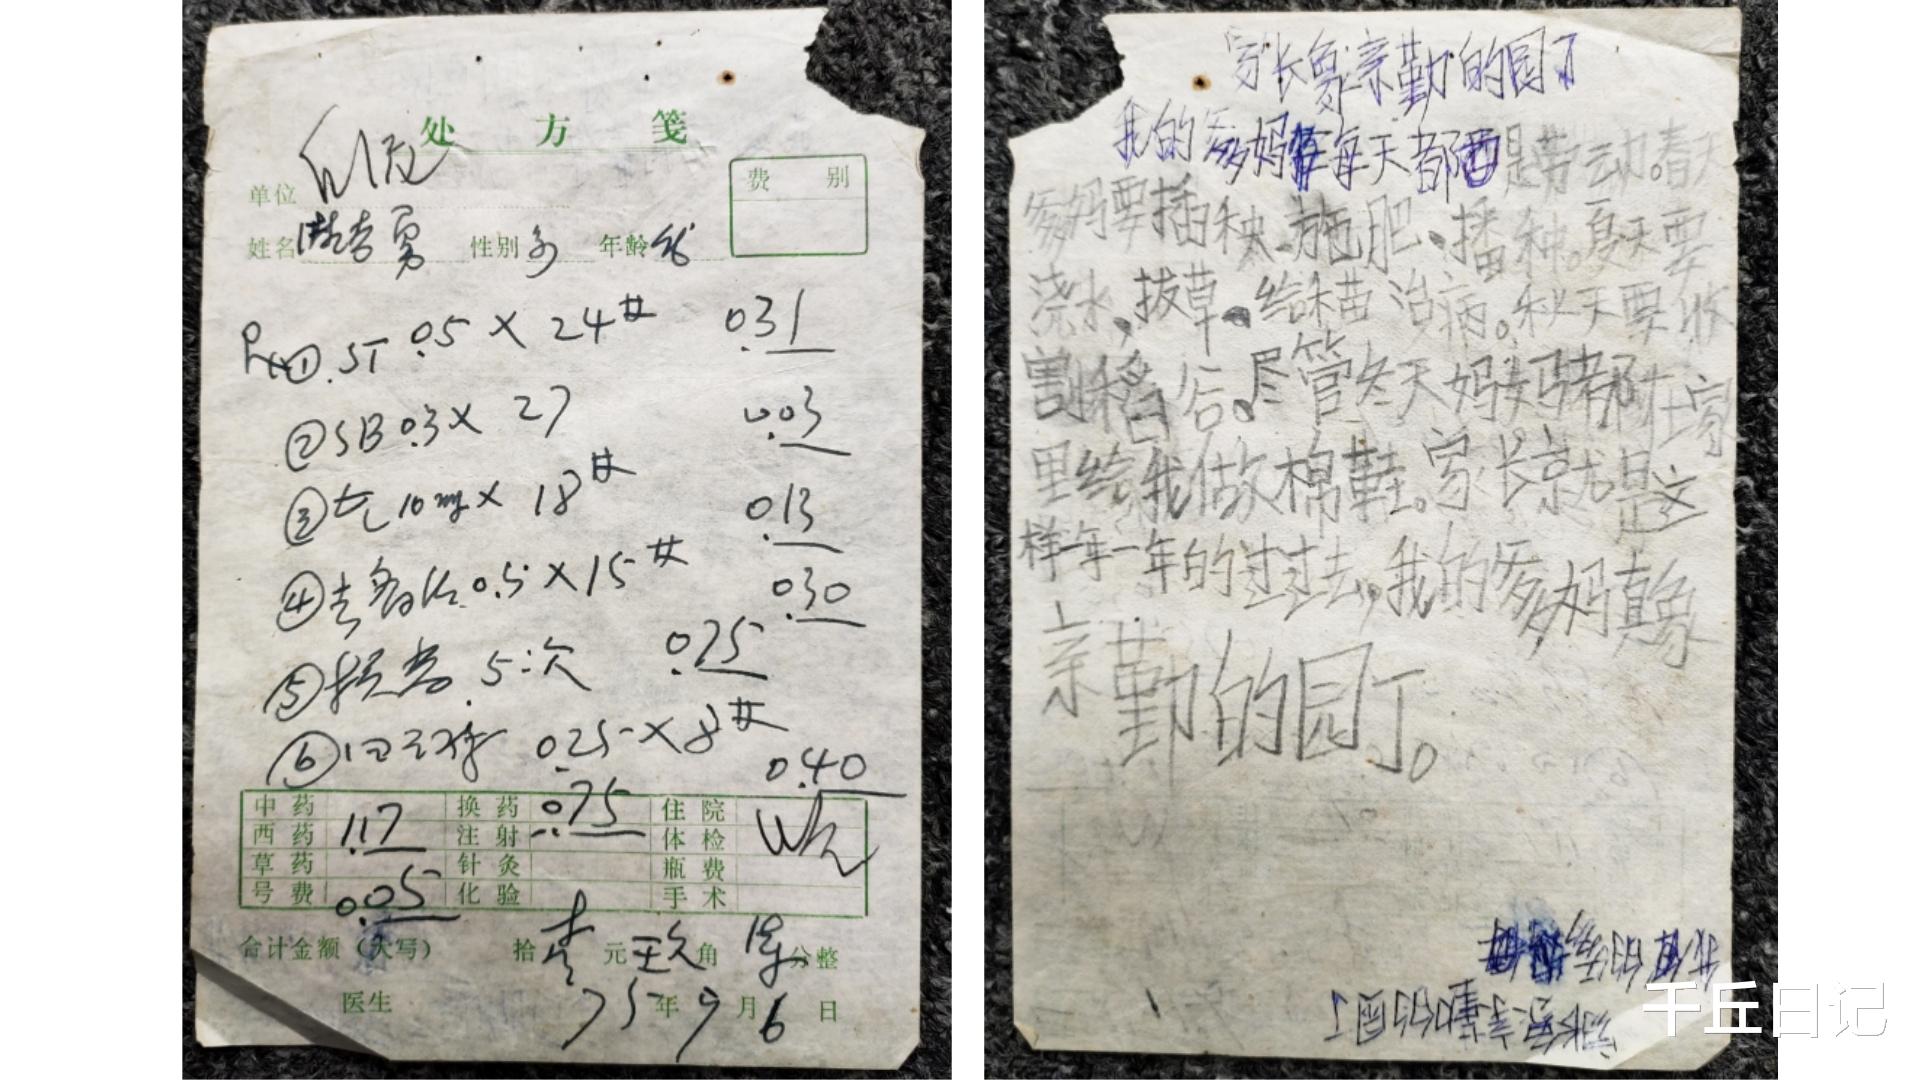 处方笺
费别
单位
姓名 性别 年龄
① ST 0.5 × 24# 0.31
② SB 0.3 × 27 0.03
③ 10mg × 18# 0.13
④ 0.5 × 15# 0.30
⑤ 5次 0.25
⑥ 0.25 × 8# 0.40
中药 换药 0.75 住院
西药 1.17 注射 体检
草药 针灸 瓶费
号费 0.05 化验 手术
合计金额（大写） 拾 元 角 分整
医生 75年9月6日
家长象亲勤的园丁
我的爹妈每天都是劳动。春天
爹妈要插秧、施肥、播种。夏天要
浇水、拔草、给禾苗治病。秋天要收
割稻谷。尽管冬天妈妈都附在家
里给我做棉鞋。家长就是这
样一年一年的过过去，我的爹妈真象
亲勤的园丁。
我的爹
家长象亲勤的园丁
千丘日记